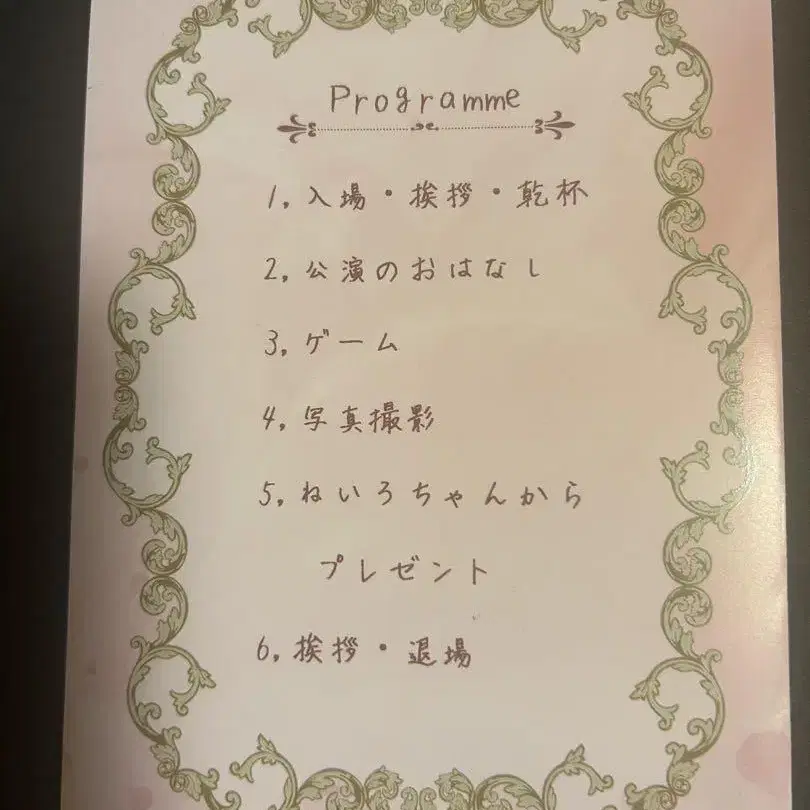 Programme
1. 入場・挨拶・乾杯
2. 公演のおはなし
3. ゲーム
4. 写真撮影
5. ねいろちゃんから
プレゼント
6. 挨拶・退場